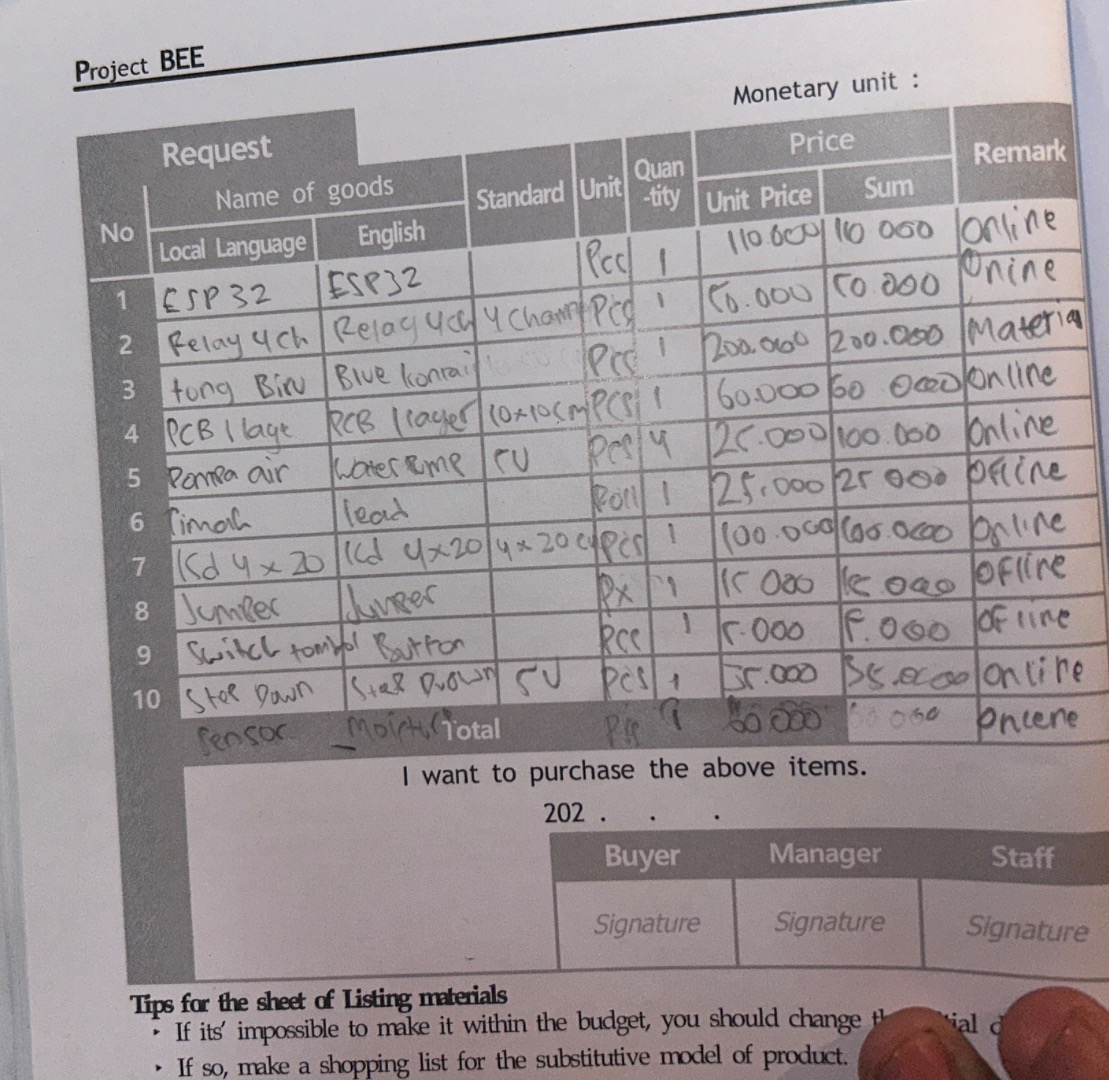 Project BEE
Monetary unit :
Request
No Name of goods Standard Unit Quan-tity Price Remark
Local Language English Unit Price Sum
1 ESP32 ESP32 Pcs 1 110.000 110 000 Online
2 Relay 4ch Relay 4ch 4 Chann Pcs 1 50.000 50.000 Onine
3 tong Biru Blue Pcs 1 200.000 200.000 Material
4 PCB 1 laye PCB 1 layer 10x10cm Pcs 1 60.000 60 000 Online
5 Pompa air water Pump 5V Pcs 4 25.000 100.000 Online
6 Timah lead Roll 1 25.000 25 000 Ofline
7 lcd 4x20 lcd 4x20 4x20 Pcs 1 100.000 100.000 Online
8 Jumper Jumper 1 15 000 15 000 Ofline
9 Switch tombol Button Pcs 1 5.000 5.000 Ofline
10 Step Down Step Down 5V Pcs 1 35.000 35.000 Online
Sensor Total 000
I want to purchase the above items.
202 . . .
Buyer Manager Staff
Signature Signature Signature
Tips for the sheet of Listing materials
‣ If its' impossible to make it within the budget, you should change
‣ If so, make a shopping list for the substitutive model of product.